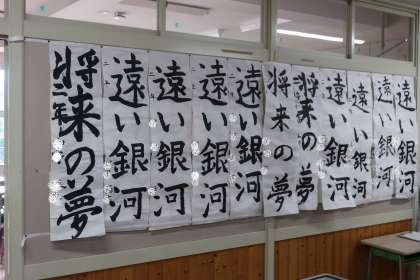 将来の夢
二年
遠い銀河
遠い銀河
遠い銀河
遠い銀河
将来の夢
将来の夢
遠い銀河
遠い銀河
遠い銀河
遠い銀河